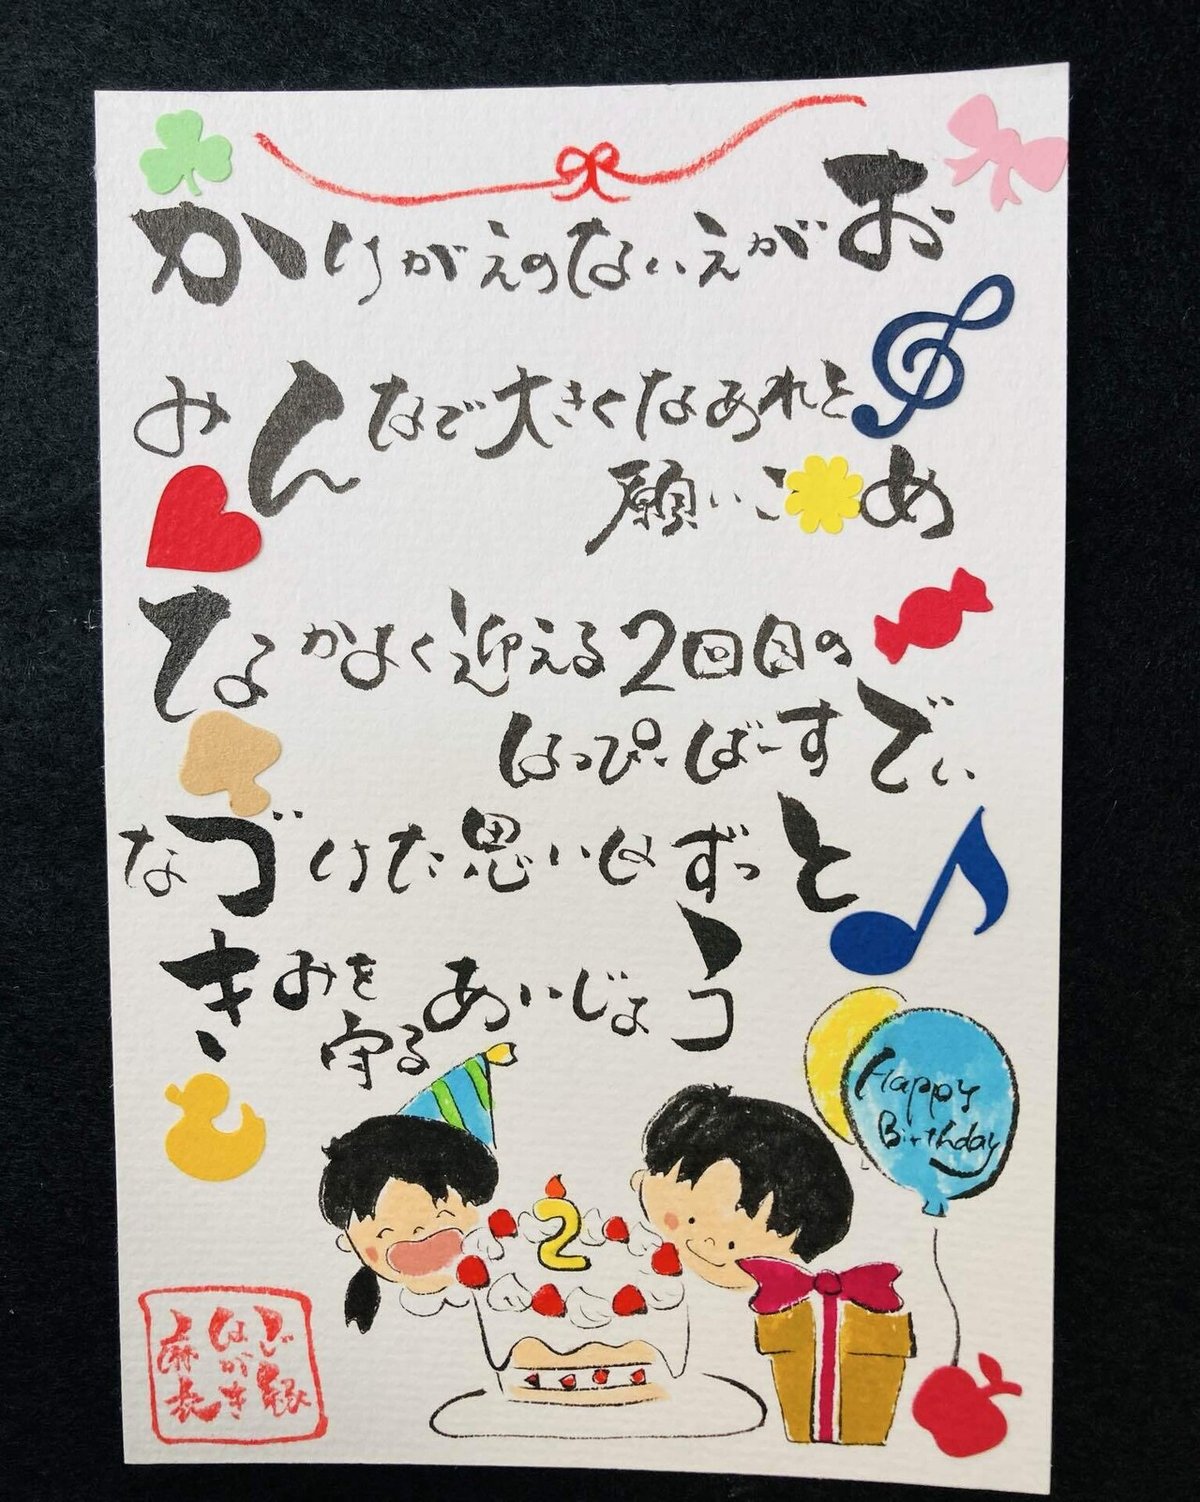 かけがえのないえがお
みんなで大きくなあれと
願いこめ
てなかよく迎える2回目の
はっぴーばーすでい
なづけた思いはずっと
きみを
守るあいじょう
Happy
Birthday
2
ご縁
はがき